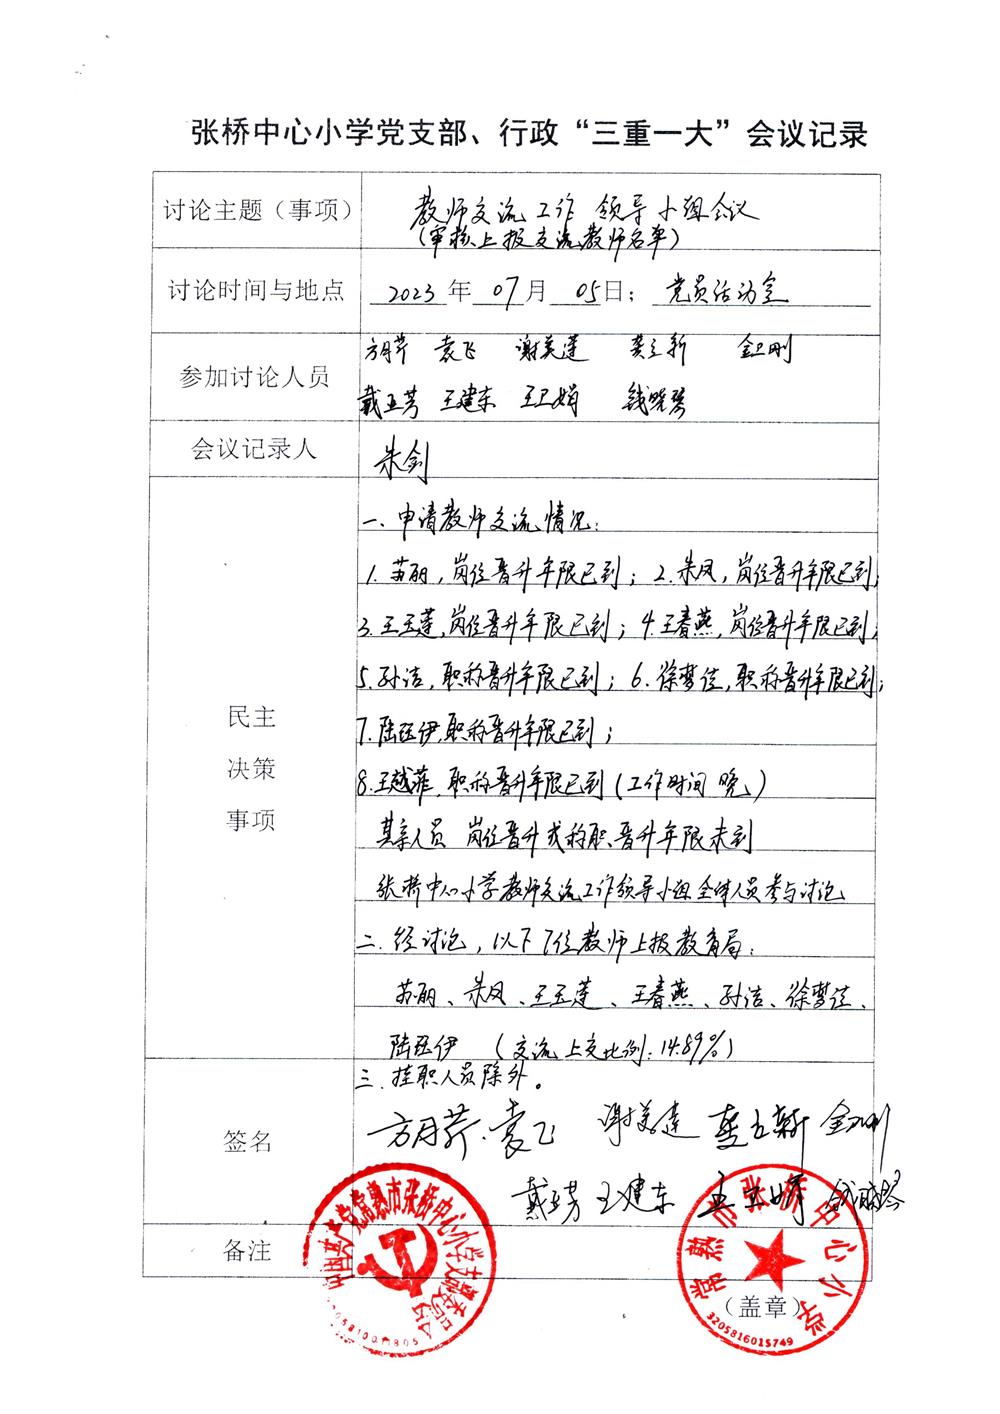 张桥中心小学党支部、行政“三重一大”会议记录
讨论主题（事项）
教师交流工作领导小组会议
（审核上报交流教师名单）
讨论时间与地点
2023年07月05日；党员活动室
参加讨论人员
方月芹 袁飞 谢美莲 龚立新 金卫刚
戴亚芳 王建东 王卫娟 钱晓琴
会议记录人
朱剑
民主
决策
事项
一、申请教师交流情况：
1.苏丽，岗位晋升年限已到；2.朱凤，岗位晋升年限已到；
3.王玉莲，岗位晋升年限已到；4.王春燕，岗位晋升年限已到；
5.孙洁，职称晋升年限已到；6.徐梦佳，职称晋升年限已到；
7.陆珏伊，职称晋升年限已到；
8.王越菲，职称晋升年限已到（工作时间晚）
其余人员 岗位晋升或称职晋升年限未到
张桥中心小学教师交流工作领导小组全体人员参与讨论
二.经讨论，以下7位教师上报教育局：
苏丽、朱凤、王玉莲、王春燕、孙洁、徐梦佳、
陆珏伊 （交流上交比例：14.89%）
三.挂职人员除外。
签名
方月芹 袁飞 谢美莲 龚立新 金卫刚
戴亚芳 王建东 王卫娟 钱晓琴
备注
中国共产党常熟市张桥中心小学支部委员会
常熟市张桥中心小学
（盖章）
3205816015749